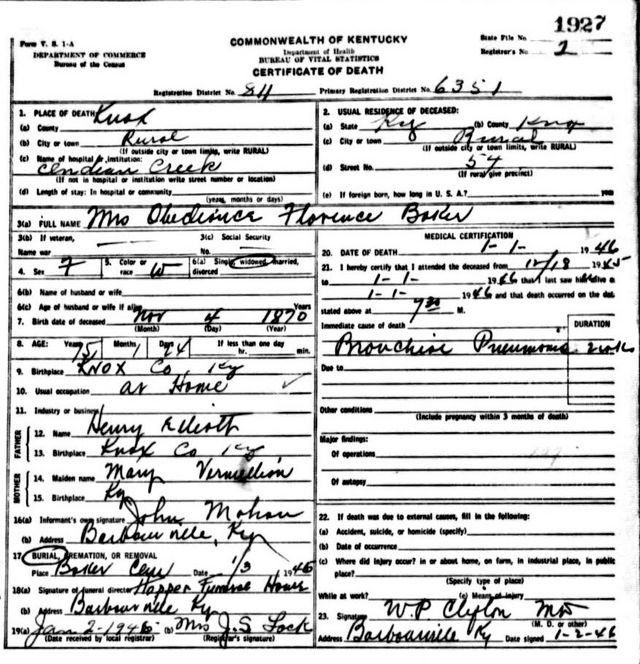 1927
Form V. S. 1-A
DEPARTMENT OF COMMERCE
Bureau of the Census
COMMONWEALTH OF KENTUCKY
Department of Health
BUREAU OF VITAL STATISTICS
CERTIFICATE OF DEATH
State File No.
Registrar's No. 2
Registration District No. 84 Primary Registration District No. 6351
1. PLACE OF DEATH Knox
(a) County
(b) City or town Rural
(If outside city or town limits, write RURAL)
(c) Name of hospital or institution:
Indian Creek
(If not in hospital or institution write street number or location)
(d) Length of stay: In hospital or community
(years, months or days)
2. USUAL RESIDENCE OF DECEASED:
(a) State Ky (b) County Knox
(c) City or town Rural
(If outside city or town limits, write RURAL)
(d) Street No. 54
(If rural give precinct)
(e) If foreign born, how long in U. S. A.? years
3(a) FULL NAME Mrs Obedience Florence Baker
3(b) If veteran,
Name war
3(c) Social Security
No.
4. Sex F 5. Color or race W 6(a) Single, widowed, married, divorced
6(b) Name of husband or wife
6(c) Age of husband or wife if alive Years
7. Birth date of deceased Nov 4 1870
(Month) (Day) (Year)
8. AGE: Years 75 Months 1 Days 24 If less than one day
hr. min.
9. Birthplace Knox Co, Ky
10. Usual occupation at Home
11. Industry or business
FATHER
12. Name Henry Elliott
13. Birthplace Knox Co Ky
MOTHER
14. Maiden name Mary Vermillion
15. Birthplace Ky
16(a) Informant's own signature John Mohan
(b) Address Barbourville, Ky
17 BURIAL, CREMATION, OR REMOVAL
Place Baker Cem Date 1/3 1946
18(a) Signature of funeral director Hopper Funeral Home
(b) Address Barbourville Ky
19(a) Jan 2-1946 (b) Mrs J.S. Lock
(Date received by local registrar) (Registrar's signature)
MEDICAL CERTIFICATION
20. DATE OF DEATH 1-1- 1946
21. I hereby certify that I attended the deceased from 12/18 1945
to 1-1- 1946 that I last saw h alive on
1-1- 1946 and that death occurred on the date
stated above at 7 30 M.
Immediate cause of death
DURATION
Bronchial Pneumonia 2 wks
Due to
Other conditions
(Include pregnancy within 3 months of death)
Major findings:
Of operations
Of autopsy
22. If death was due to external causes, fill in the following:
(a) Accident, suicide, or homicide (specify)
(b) Date of occurrence
(c) Where did injury occur? in or about home, on farm, in industrial place, in public
place?
(Specify type of place)
While at work? (e) Means of injury
23. Signature W.P. Clifton MD
(M. D. or other)
Address Barbourville Ky Date signed 1-2-46